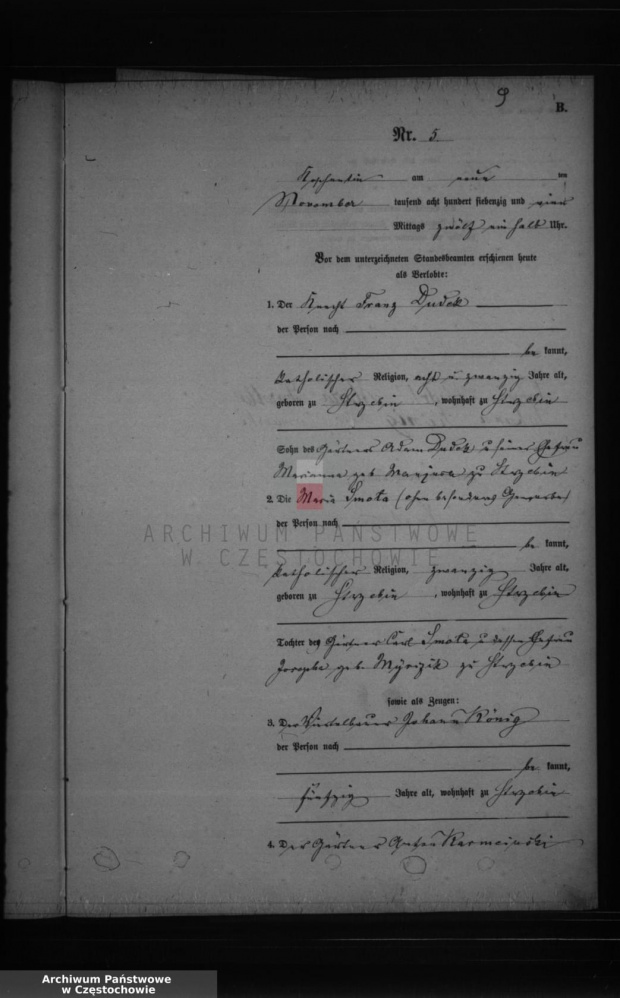 9
B.
Nr. 5
Koschentin am neun ten
November tausend acht hundert siebenzig und vier
Mittags zwölf ein halb Uhr.
Vor dem unterzeichneten Standesbeamten erschienen heute
als Verlobte:
1. Der Knecht Franz Dudek
der Person nach
be kannt,
katholischer Religion, acht u. zwanzig Jahre alt,
geboren zu Strzebin, wohnhaft zu Strzebin
Sohn des Gärtners Adam Dudek u seiner Ehefrau
Marianna geb. zu Strzebin
2. Die Marie Smota (ohne besonderes Gewerbe)
der Person nach
be kannt,
katholischer Religion, zwanzig Jahre alt,
geboren zu Strzebin, wohnhaft zu Strzebin
Tochter des Gärtners Carl Smota u dessen Ehefrau
Josepha geb. zu Strzebin
sowie als Zeugen:
3. Der Viertelbauer Johann König
der Person nach
be kannt,
fünfzig Jahre alt, wohnhaft zu Strzebin
4. Der Gärtner Anton
ARCHIWUM PAŃSTWOWE
W CZĘSTOCHOWIE
Archiwum Państwowe
w Częstochowie